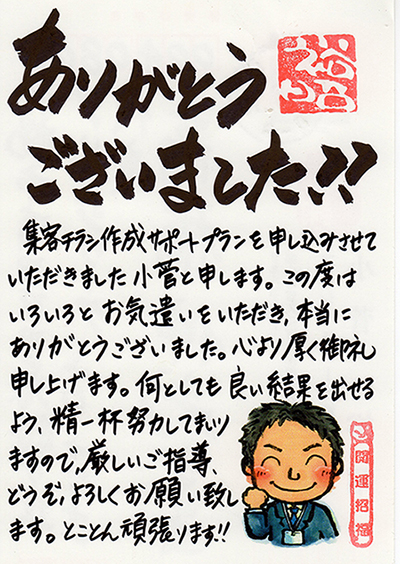 ありがとう
ございました!!
集客チラシ作成サポートプランを申し込みさせて
いただきました小菅と申します。この度は
いろいろとお気遣いをいただき、本当に
ありがとうございました。心より厚く御礼
申し上げます。何としても良い結果を出せる
よう、精一杯努力してまいり
ますので、厳しいご指導、
どうぞ、よろしくお願い致し
ます。とことん頑張ります!!
開運招福